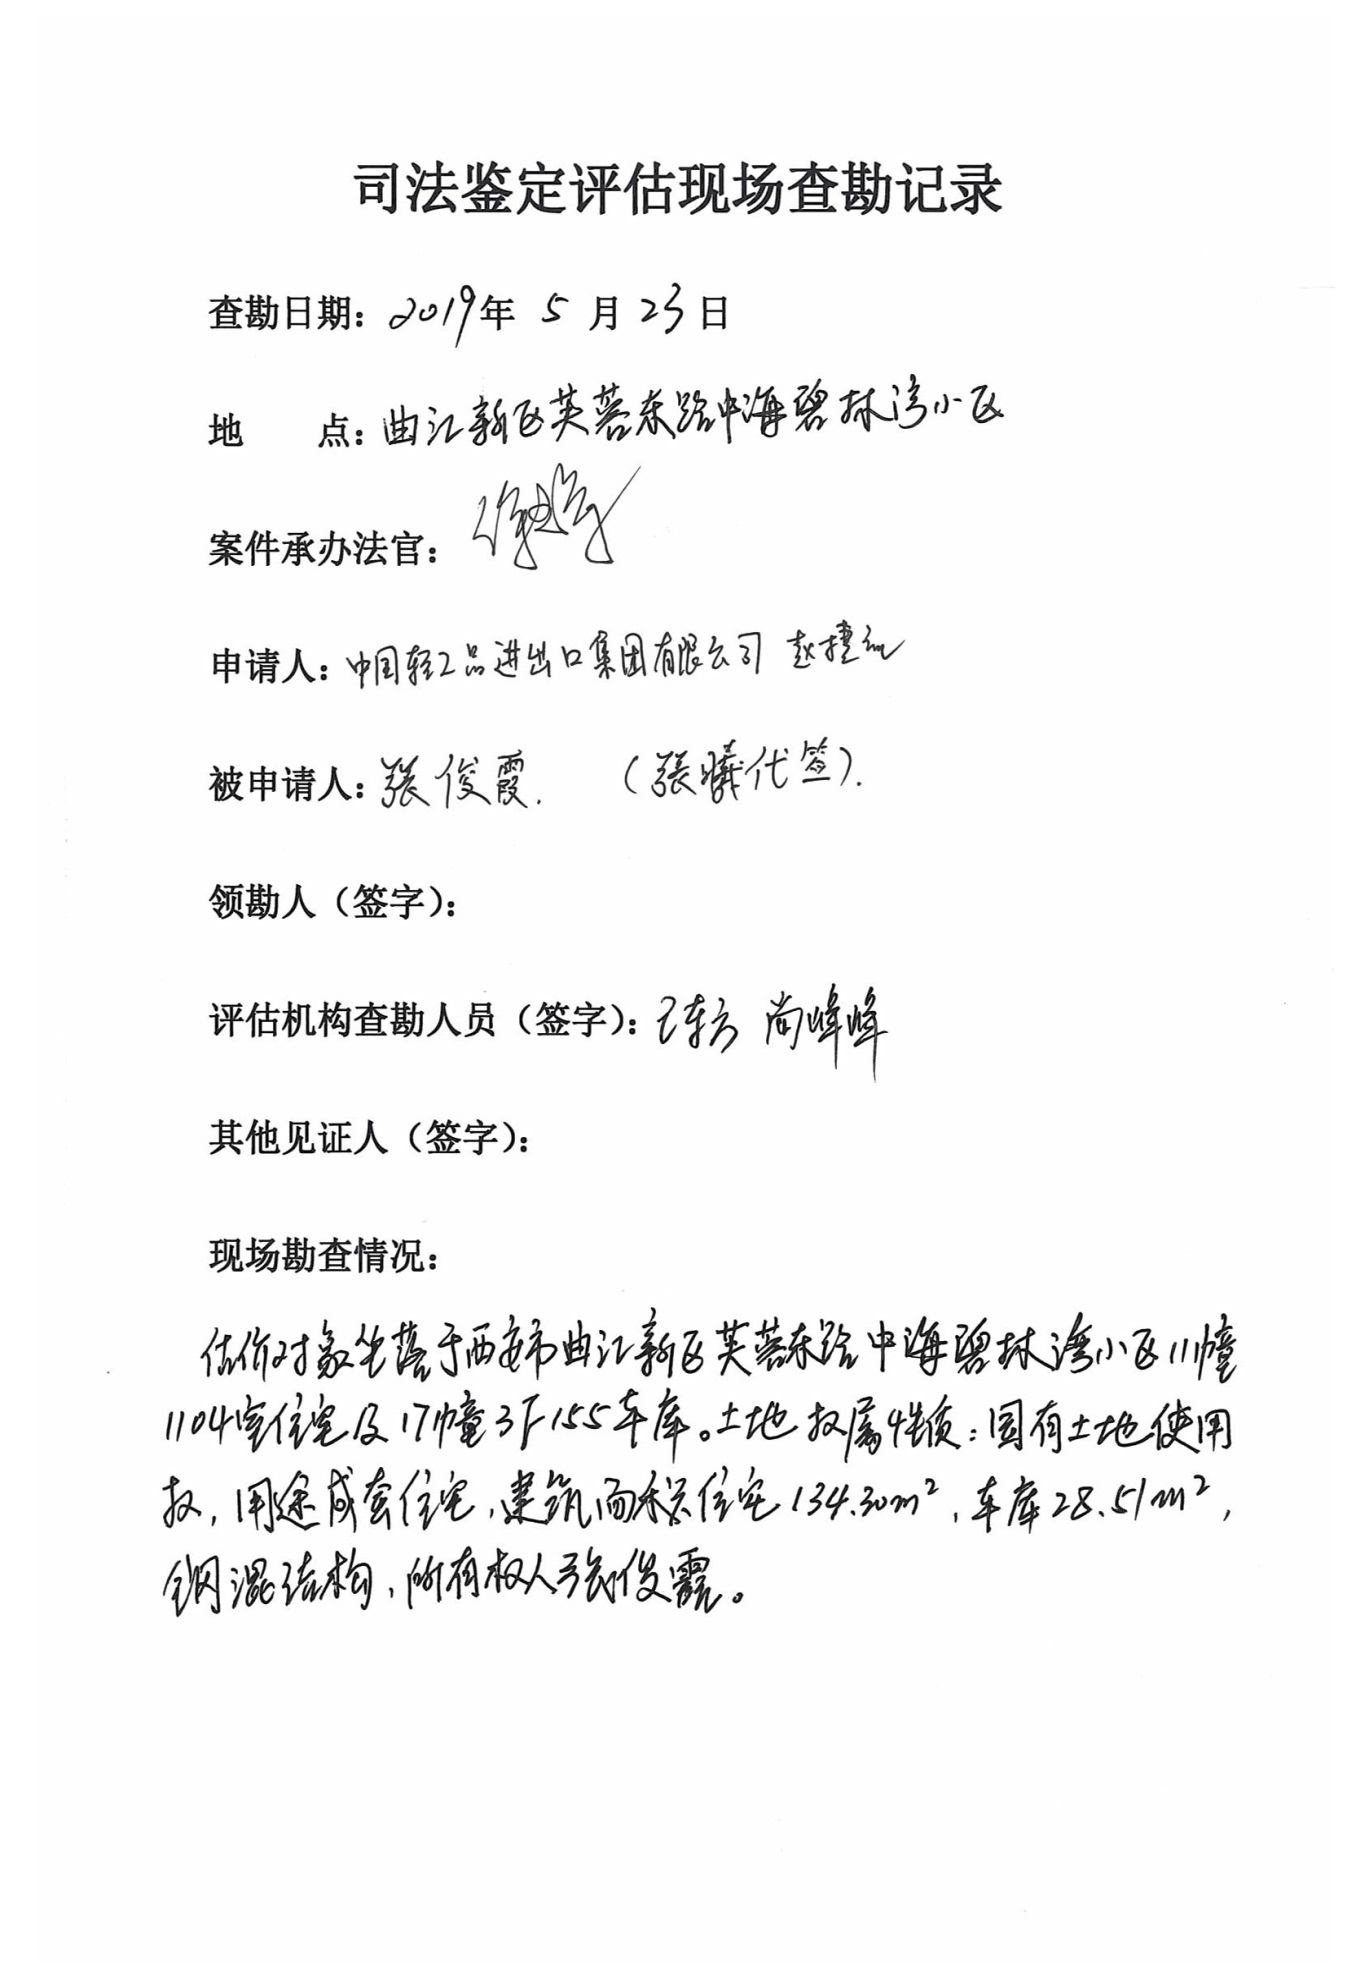 司法鉴定评估现场查勘记录
查勘日期：2019年 5 月 23 日
地 点：曲江新区芙蓉东路中海碧林湾小区
案件承办法官：
申请人：中国轻工品进出口集团有限公司 赵捷
被申请人：張俊霞. （張曦代签）.
领勘人（签字）：
评估机构查勘人员（签字）：王东方 尚峰峰
其他见证人（签字）：
现场勘查情况：
估价对象坐落于西安市曲江新区芙蓉东路中海碧林湾小区11幢
1104室住宅及17幢3F155车库。土地权属性质：国有土地使用
权，用途成套住宅，建筑面积住宅134.30m²，车库28.51m²，
钢混结构，所有权人张俊霞。